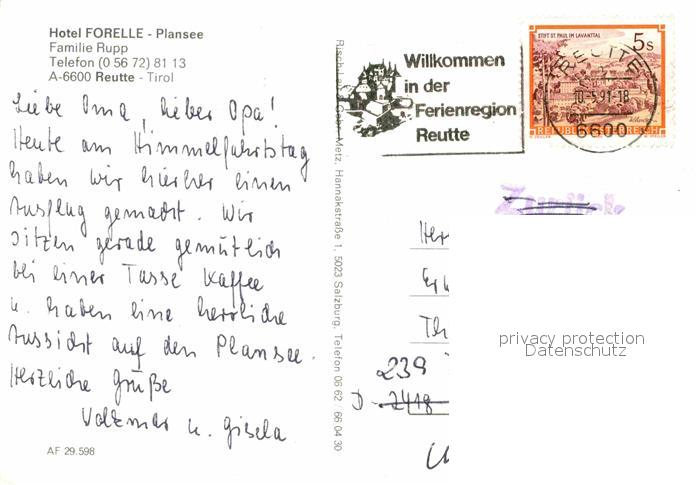 Hotel FORELLE - Plansee
Familie Rupp
Telefon (0 56 72) 81 13
A-6600 Reutte - Tirol
Liebe Oma, lieber Opa!
Heute am Himmelfahrtstag
haben wir hierher einen
Ausflug gemacht. Wir
sitzen gerade gemütlich
bei einer Tasse Kaffee
u. haben eine herrliche
Aussicht auf den Plansee.
Herzliche Grüße
Volkmar u. Gisela
AF 29.598
Metz, Hannakstraße 1, 5023 Salzburg, Telefon 06 62 66 04 30
Willkommen
in der
Ferienregion
Reutte
STIFT ST. PAUL IM LAVANTTAL
5s
REPUBLIK ÖSTERREICH
REUTTE
-18
6600
Zurück
Her
Th
239
D-2418
privacy protection
Datenschutz